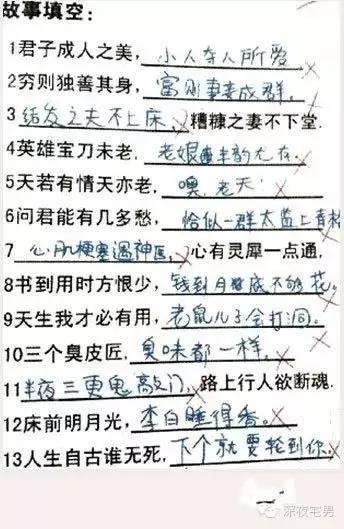 故事填空：
1君子成人之美，小人夺人所爱.
2穷则独善其身，富则妻妾成群.
3结发之夫不上床，糟糠之妻不下堂.
4英雄宝刀未老，老娘风韵尤存.
5天若有情天亦老，噢，老天
6问君能有几多愁，恰似一群太监上青楼
7心肌梗塞遇神医，心有灵犀一点通，
8书到用时方恨少，钱到月底不够花。
9天生我才必有用，老鼠儿子会打洞.
10三个臭皮匠，臭味都一样。
11半夜三更鬼敲门，路上行人欲断魂.
12床前明月光，李白睡得香。
13人生自古谁无死，下个就要轮到你.
深夜宅男